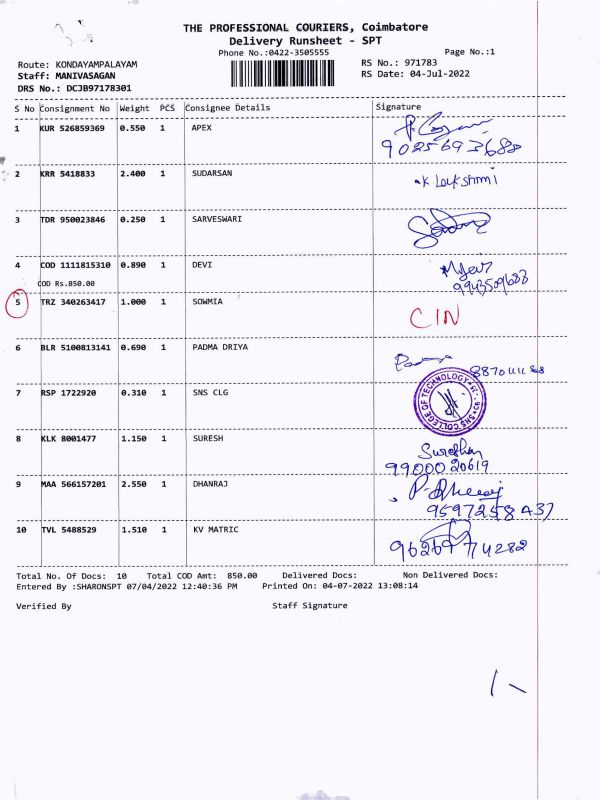 THE PROFESSIONAL COURIERS, Coimbatore
Delivery Runsheet - SPT
Phone No.:0422-3505555
Page No.:1
Route: KONDAYAMPALAYAM
RS No.: 971783
Staff: MANIVASAGAN
RS Date: 04-Jul-2022
DRS No.: DCJB97178301
S No Consignment No Weight PCS Consignee Details Signature
1 KUR 526859369 0.550 1 APEX
9025693688
2 KRR 5418833 2.400 1 SUDARSAN K Lakshmi
3 TDR 950023846 0.250 1 SARVESWARI
4 COD 1111815310 0.890 1 DEVI
COD Rs.850.00
5 TRZ 340263417 1.000 1 SOWMIA CIN
6 BLR 5100813141 0.690 1 PADMA DRIYA
7 RSP 1722920 0.310 1 SNS CLG SNS COLLEGE OF TECHNOLOGY
8 KLK 8001477 1.150 1 SURESH
9900020619
9 MAA 566157201 2.550 1 DHANRAJ
10 TVL 5488529 1.510 1 KV MATRIC
Total No. Of Docs: 10 Total COD Amt: 850.00 Delivered Docs: Non Delivered Docs:
Entered By :SHARONSPT 07/04/2022 12:40:36 PM Printed On: 04-07-2022 13:08:14
Verified By Staff Signature